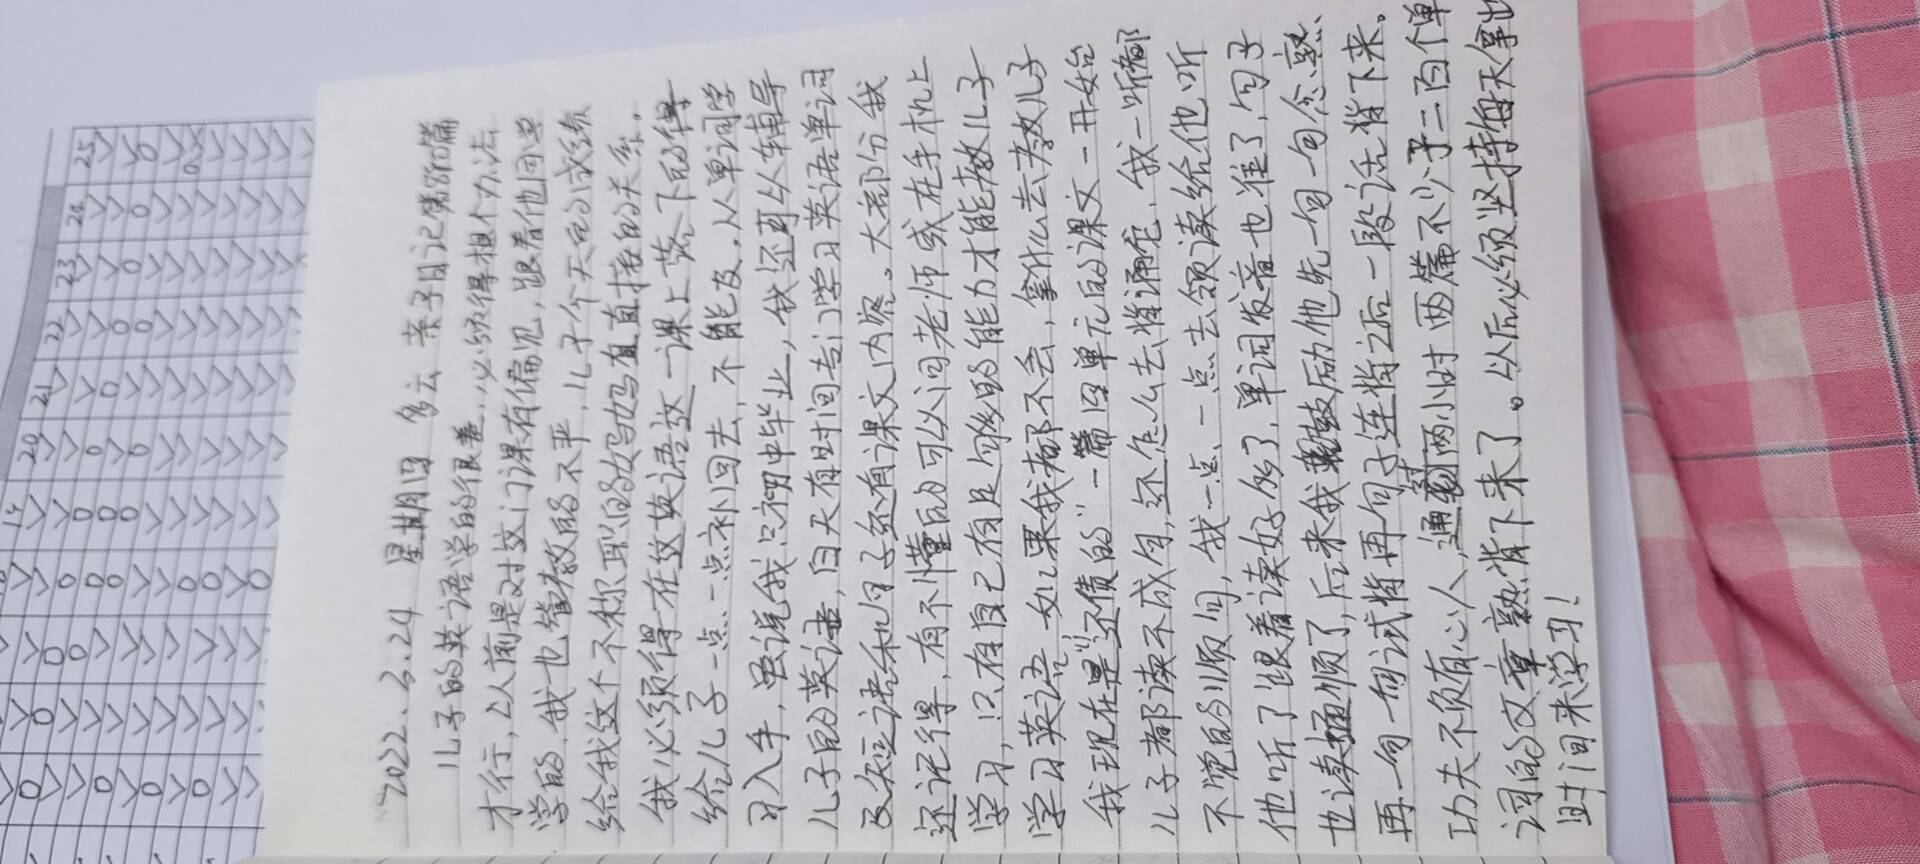 2022.3.24 星期四 多云 亲子日记第 篇
儿子的英语学的很差,必须得想个办法
才行,以前是对这门课有偏见,跟着他同学
学的,我也管教的不严,儿子今天的成绩
给我这个不称职的妈妈有直接的关系。
我必须得在这英语这一课上落下的得
给儿子一点一点补回去,不能放,从单词学
习入手,虽说我只初中毕业,我还可以辅导
儿子的英语,白天有时间专门学习英语单词
及短语和句子还有课文内容。大部分我
还记得,有不懂的可以问老师或在手机上
学习,只有自己有足够的能力才能教儿子
学习英语,如果我都不会,拿什么去教儿子
我现在是"还债的"一篇四单元的课文一开始
儿子都读不成句,还怎么去背诵呢,我一听都
不觉的顺问,我一点一点去领读给他听
他听了跟着读好多了,单词发音也准了,句子
也读通顺了,后来我鼓励他先一句一句念熟
再一句一句试背再句子连背之后一段话背下来。
功夫不负有心人,通过两小时两篇不少于二百个单
词的文章熟背下来了。以后必须坚持每天拿出
时间来学习!
25
24
23
22
21
20
19